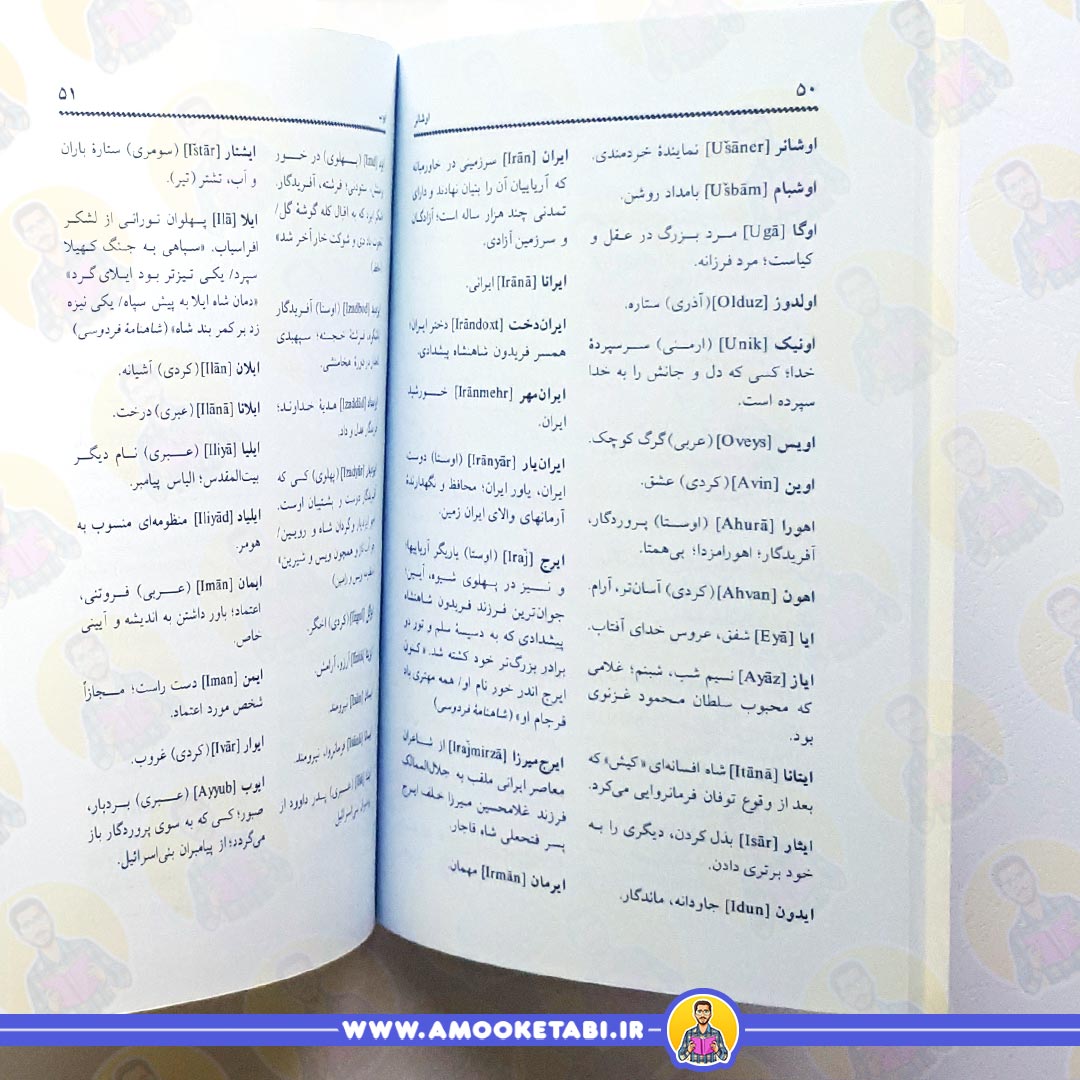 ۵۰
اوشانر
اوشانر [Ušāner] نمایندهٔ خردمندی.
اوشبام [Ušbām] بامداد روشن.
اوگا [Ugā] مرد بزرگ در عقل و
کیاست؛ مرد فرزانه.
اولدوز [Olduz] (آذری) ستاره.
اونیک [Unik] (ارمنی) سرسپردهٔ
خدا؛ کسی که دل و جانش را به خدا
سپرده است.
اویس [Oveys] (عربی) گرگ کوچک.
اوین [Avin] (کردی) عشق.
اهورا [Ahurā] (اوستا) پروردگار،
آفریدگار؛ اهورامزدا؛ بی‌همتا.
اهون [Ahvan] (کردی) آسان‌تر، آرام.
ایا [Eyā] شفق، عروس خدای آفتاب.
ایاز [Ayāz] نسیم شب، شبنم؛ غلامی
که محبوب سلطان محمود غزنوی
بود.
ایتانا [Itānā] شاه افسانه‌ای «کیش» که
بعد از وقوع توفان فرمانروایی می‌کرد.
ایثار [Isār] بذل کردن، دیگری را به
خود برتری دادن.
ایدون [Idun] جاودانه، ماندگار.
ایران [Irān] سرزمینی در خاورمیانه
که آریاییان آن را بنیان نهادند و دارای
تمدنی چند هزار ساله است؛ آزادگان
و سرزمین آزادی.
ایرانا [Irānā] ایرانی.
ایران‌دخت [Irāndoxt] دختر ایران؛
همسر فریدون شاهنشاه پیشدادی.
ایران‌مهر [Irānmehr] خورشید
ایران.
ایران‌یار [Irānyār] (اوستا) دوست
ایران، یاور ایران؛ محافظ و نگهدارندهٔ
آرمانهای والای ایران زمین.
ایرج [Iraǰ] (اوستا) یاریگر آریاییها؛
و نیز در پهلوی شیوه، آیین؛
جوان‌ترین فرزند فریدون شاهنشاه
پیشدادی که به دسیسهٔ سلم و تور دو
برادر بزرگ‌تر خود کشته شد. «کنون
ایرج اندر خور نام او/ همه مهتری باد
فرجام او» (شاهنامهٔ فردوسی)
ایرج‌میرزا [Iraǰmirzā] از شاعران
معاصر ایرانی ملقب به جلال‌الممالک
فرزند غلامحسین میرزا خلف ایرج
پسر فتحعلی شاه قاجار.
ایرمان [Irmān] مهمان.
۵۱
(پهلوی) در خور
فرشته، آفریدگار.
که به اقبال کله گوشهٔ گل/
دی و شوکت خار آخر شد»
[Izadbod] (اوستا) آفریدگار
فرشتهٔ خجسته؛ سپهبدی
در دورهٔ هخامنشی.
[Izaddād] هدیهٔ خداوند؛
عدل و داد.
[Izadyār] (پهلوی) کسی که
دوست و پشتیان اوست.
و گردان شاه و رویین/
و همچون ویس و شیرین»
(کردی) اخگر.
آرزو، آرامش.
نیرومند.
فرمانروا، نیرومند.
(عبری) پدر داوود از
ایشتار [Ištār] (سومری) ستارهٔ باران
و آب، تشتر (تیر).
ایلا [Ilā] پهلوان تورانی از لشکر
افراسیاب. «سپاهی به جنگ کهیلا
سپرد/ یکی تیزتر بود ایلای گرد»
«دمان شاه ایلا به پیش سپاه/ یکی نیزه
زد بر کمر بند شاه» (شاهنامهٔ فردوسی)
ایلان [Ilān] (کردی) آشیانه.
ایلانا [Ilānā] (عبری) درخت.
ایلیا [Iliyā] (عبری) نام دیگر
بیت‌المقدس؛ الیاس پیامبر.
ایلیاد [Iliyād] منظومه‌ای منسوب به
هومر.
ایمان [Imān] (عربی) فروتنی،
اعتماد؛ باور داشتن به اندیشه و آیینی
خاص.
ایمن [Iman] دست راست؛ مجازاً
شخص مورد اعتماد.
ایوار [Ivār] (کردی) غروب.
ایوب [Ayyub] (عبری) بردبار،
صبور؛ کسی که به سوی پروردگار باز
می‌گردد؛ از پیامبران بنی‌اسرائیل.
WWW.AMOOKETABI.IR